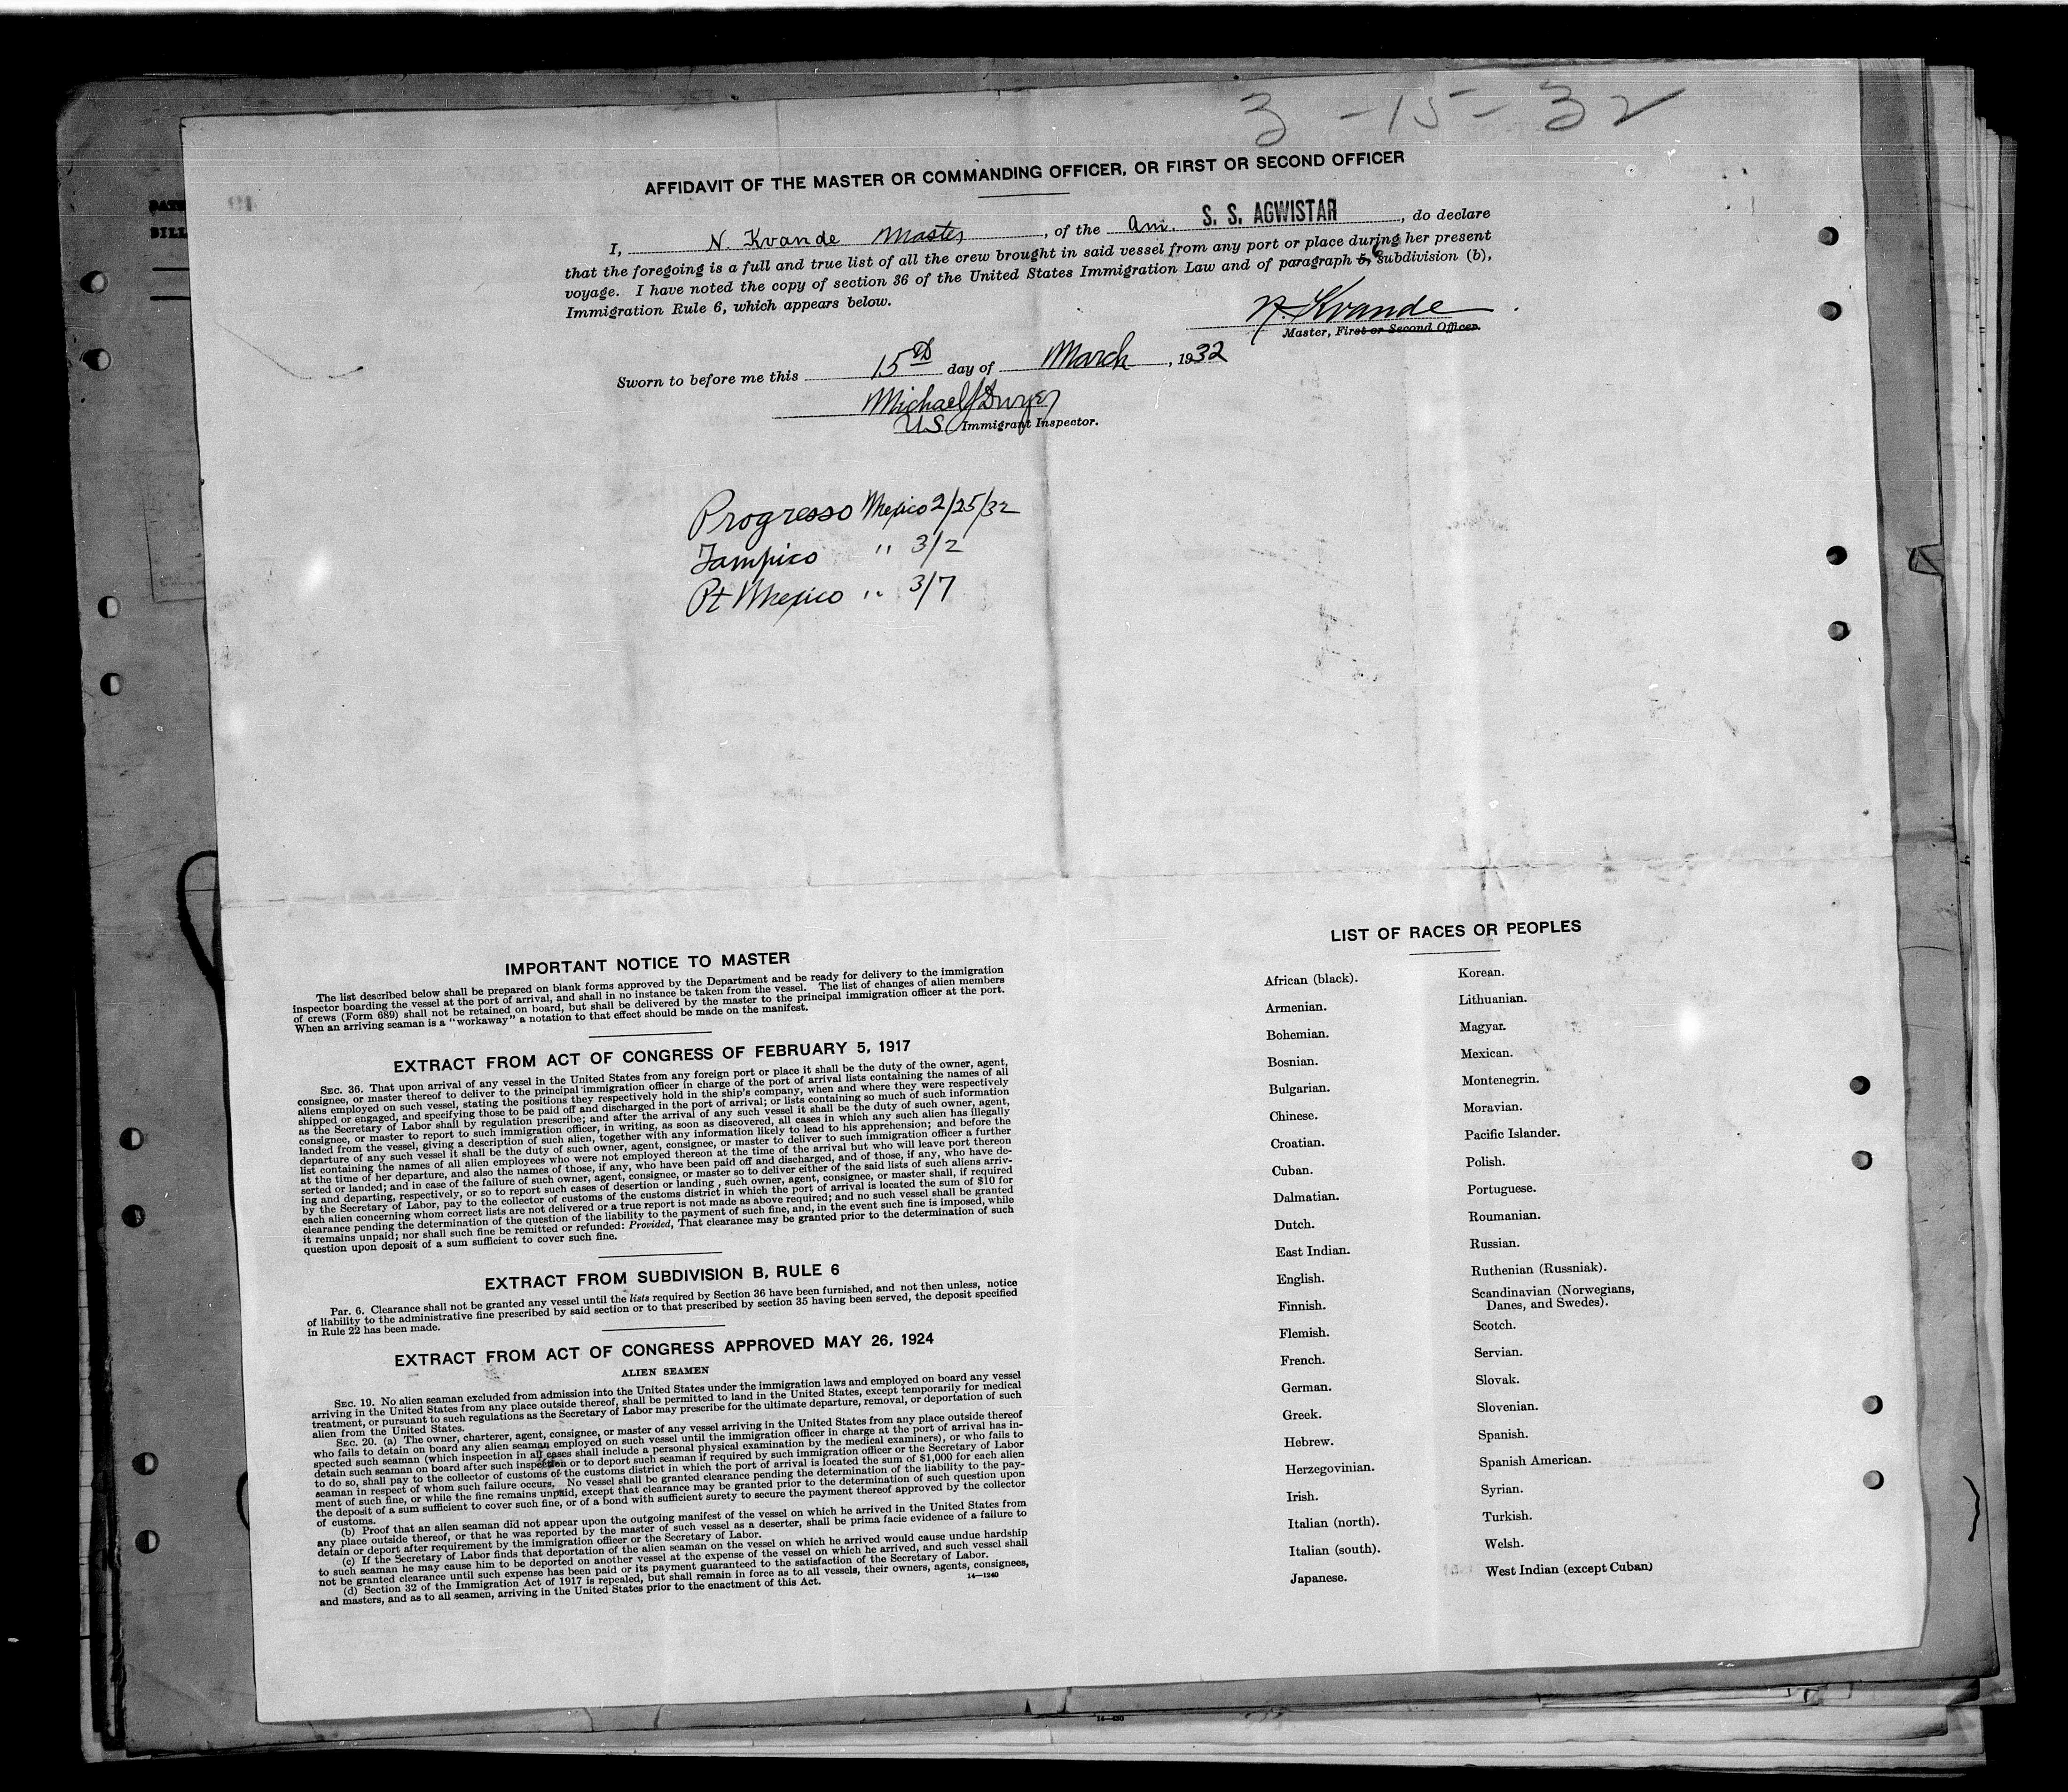 3-15-32
AFFIDAVIT OF THE MASTER OR COMMANDING OFFICER, OR FIRST OR SECOND OFFICER
I, N. Kvande Master, of the Am. S. S. AGWISTAR, do declare
that the foregoing is a full and true list of all the crew brought in said vessel from any port or place during her present
voyage. I have noted the copy of section 36 of the United States Immigration Law and of paragraph 5, 6 subdivision (b),
Immigration Rule 6, which appears below.
N. Kvande
Master, First or Second Officer.
Sworn to before me this 15th day of March, 1932
Michael J Dwyer
US Immigrant Inspector.
Progresso Mexico 2/25/32
Tampico " 3/2
Pt Mexico " 3/7
IMPORTANT NOTICE TO MASTER
The list described below shall be prepared on blank forms approved by the Department and be ready for delivery to the immigration
inspector boarding the vessel at the port of arrival, and shall in no instance be taken from the vessel. The list of changes of alien members
of crews (Form 689) shall not be retained on board, but shall be delivered by the master to the principal immigration officer at the port.
When an arriving seaman is a "workaway" a notation to that effect should be made on the manifest.
EXTRACT FROM ACT OF CONGRESS OF FEBRUARY 5, 1917
SEC. 36. That upon arrival of any vessel in the United States from any foreign port or place it shall be the duty of the owner, agent,
consignee, or master thereof to deliver to the principal immigration officer in charge of the port of arrival lists containing the names of all
aliens employed on such vessel, stating the positions they respectively hold in the ship's company, when and where they were respectively
shipped or engaged, and specifying those to be paid off and discharged in the port of arrival; or lists containing so much of such information
as the Secretary of Labor shall by regulation prescribe; and after the arrival of any such vessel it shall be the duty of such owner, agent,
consignee, or master to report to such immigration officer, in writing, as soon as discovered, all cases in which any such alien has illegally
landed from the vessel, giving a description of such alien, together with any information likely to lead to his apprehension; and before the
departure of any such vessel it shall be the duty of such owner, agent, consignee, or master to deliver to such immigration officer a further
list containing the names of all alien employees who were not employed thereon at the time of the arrival but who will leave port thereon
at the time of her departure, and also the names of those, if any, who have been paid off and discharged, and of those, if any, who have de-
serted or landed; and in case of the failure of such owner, agent, consignee, or master so to deliver either of the said lists of such aliens arriv-
ing and departing, respectively, or so to report such cases of desertion or landing, such owner, agent, consignee, or master shall, if required
by the Secretary of Labor, pay to the collector of customs of the customs district in which the port of arrival is located the sum of $10 for
each alien concerning whom correct lists are not delivered or a true report is not made as above required; and no such vessel shall be granted
clearance pending the determination of the question of the liability to the payment of such fine, and, in the event such fine is imposed, while
it remains unpaid; nor shall such fine be remitted or refunded: Provided, That clearance may be granted prior to the determination of such
question upon deposit of a sum sufficient to cover such fine.
EXTRACT FROM SUBDIVISION B, RULE 6
Par. 6. Clearance shall not be granted any vessel until the lists required by Section 36 have been furnished, and not then unless, notice
of liability to the administrative fine prescribed by said section or to that prescribed by section 35 having been served, the deposit specified
in Rule 22 has been made.
EXTRACT FROM ACT OF CONGRESS APPROVED MAY 26, 1924
ALIEN SEAMEN
SEC. 19. No alien seaman excluded from admission into the United States under the immigration laws and employed on board any vessel
arriving in the United States from any place outside thereof, shall be permitted to land in the United States, except temporarily for medical
treatment, or pursuant to such regulations as the Secretary of Labor may prescribe for the ultimate departure, removal, or deportation of such
alien from the United States.
SEC. 20. (a) The owner, charterer, agent, consignee, or master of any vessel arriving in the United States from any place outside thereof
who fails to detain on board any alien seaman employed on such vessel until the immigration officer in charge at the port of arrival has in-
spected such seaman (which inspection in all cases shall include a personal physical examination by the medical examiners), or who fails to
detain such seaman on board after such inspection or to deport such seaman if required by such immigration officer or the Secretary of Labor
to do so, shall pay to the collector of customs of the customs district in which the port of arrival is located the sum of $1,000 for each alien
seaman in respect of whom such failure occurs. No vessel shall be granted clearance pending the determination of the liability to the pay-
ment of such fine, or while the fine remains unpaid, except that clearance may be granted prior to the determination of such question upon
the deposit of a sum sufficient to cover such fine, or of a bond with sufficient surety to secure the payment thereof approved by the collector
of customs.
(b) Proof that an alien seaman did not appear upon the outgoing manifest of the vessel on which he arrived in the United States from
any place outside thereof, or that he was reported by the master of such vessel as a deserter, shall be prima facie evidence of a failure to
detain or deport after requirement by the immigration officer or the Secretary of Labor.
(c) If the Secretary of Labor finds that deportation of the alien seaman on the vessel on which he arrived would cause undue hardship
to such seaman he may cause him to be deported on another vessel at the expense of the vessel on which he arrived, and such vessel shall
not be granted clearance until such expense has been paid or its payment guaranteed to the satisfaction of the Secretary of Labor.
(d) Section 32 of the Immigration Act of 1917 is repealed, but shall remain in force as to all vessels, their owners, agents, consignees,
and masters, and as to all seamen, arriving in the United States prior to the enactment of this Act.
14—1240
LIST OF RACES OR PEOPLES
African (black).
Armenian.
Bohemian.
Bosnian.
Bulgarian.
Chinese.
Croatian.
Cuban.
Dalmatian.
Dutch.
East Indian.
English.
Finnish.
Flemish.
French.
German.
Greek.
Hebrew.
Herzegovinian.
Irish.
Italian (north).
Italian (south).
Japanese.
Korean.
Lithuanian.
Magyar.
Mexican.
Montenegrin.
Moravian.
Pacific Islander.
Polish.
Portuguese.
Roumanian.
Russian.
Ruthenian (Russniak).
Scandinavian (Norwegians,
Danes, and Swedes).
Scotch.
Servian.
Slovak.
Slovenian.
Spanish.
Spanish American.
Syrian.
Turkish.
Welsh.
West Indian (except Cuban)